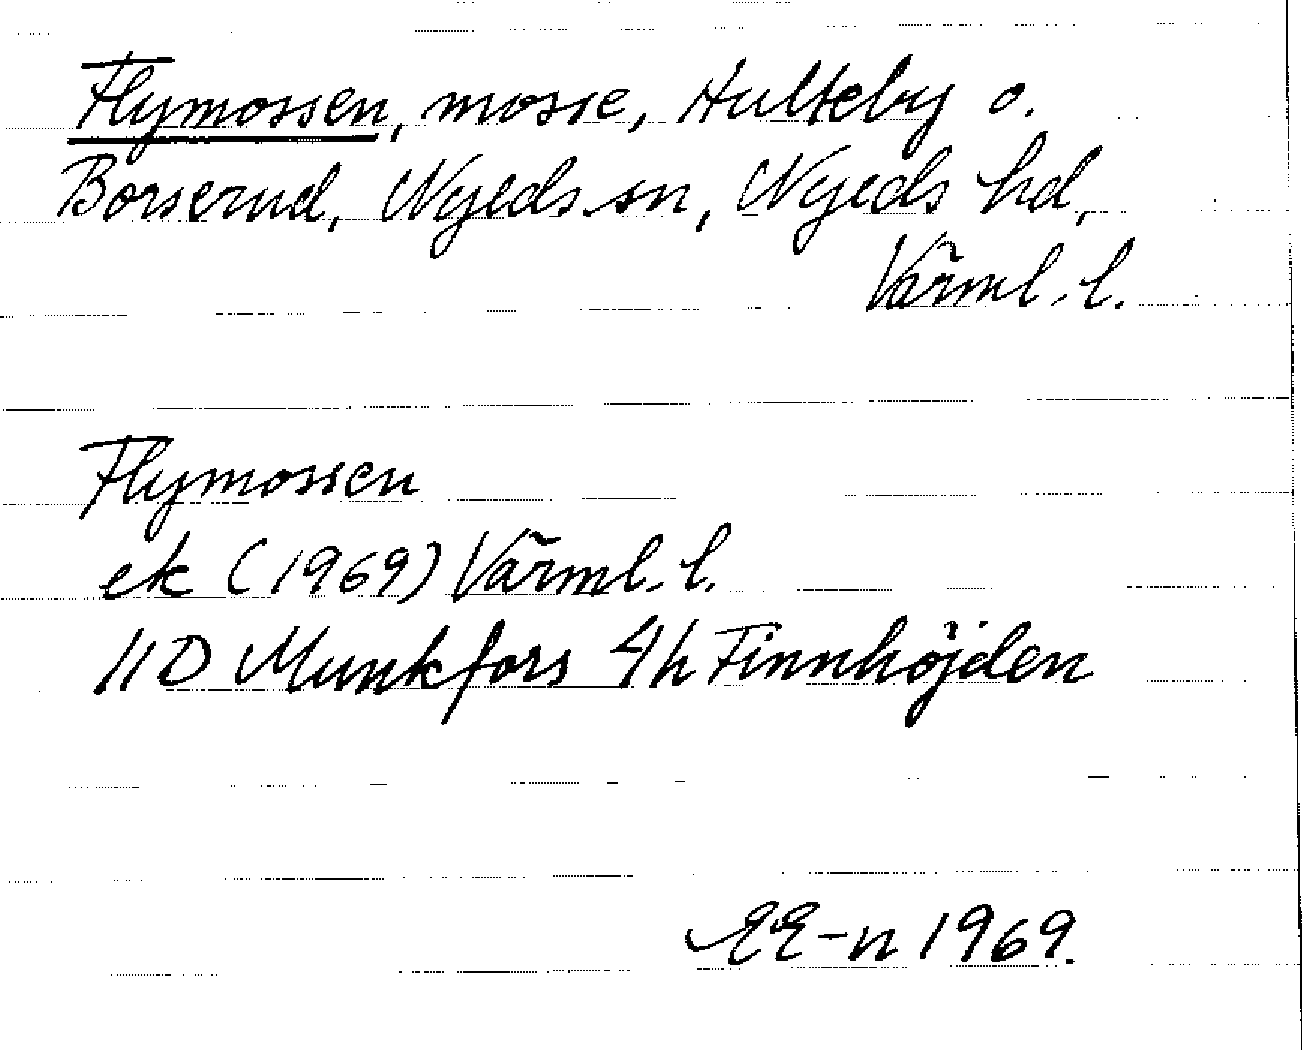 Flymossen, mosse, Hulteby o.
Borserud, Nyeds sn, Nyeds hd,
Värml. l.
Flymossen
ek (1969) Värml. l.
11D Munkfors 4h Finnhöjden
EE-n 1969.